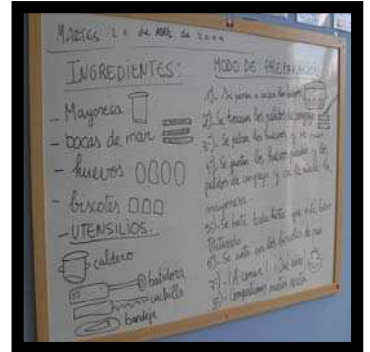 MARTES 21 de de 2009
INGREDIENTES:
- Mayonesa
- bocas de mar
- huevos
- biscotes
- UTENSILIOS.-
caldero
batidora
cuchillo
bandeja
MODO DE PREPARACIÓN
1).- Se ponen a cocer los huevos
2).- Se trocean los palitos de cangrejo
3º).- Se pelan los huevos y se
4º).- Se juntan los huevos picados y los
palitos de cangrejo y se le añade la
mayonesa.
5º).- Se bate todo hasta que esté bien
triturado.
6º).- Se unta en los biscotes de pan
7º).- ¡A comer! ¡Qué rico!
8º).- Compartimos nuestra receta